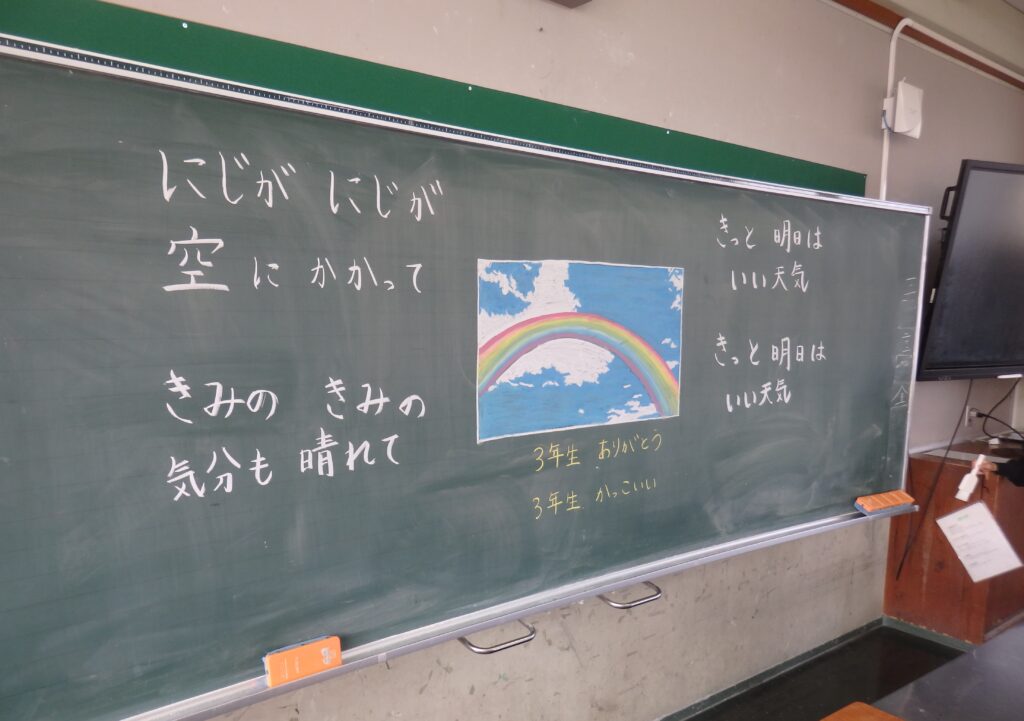 にじが にじが
空に かかって
きみの きみの
気分も 晴れて
きっと 明日は
いい天気
きっと 明日は
いい天気
3年生 ありがとう
3年生 かっこいい